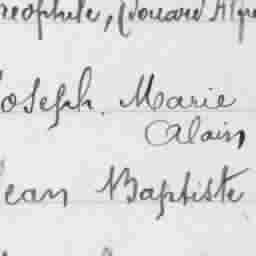 reophile, Edouard Alp
Joseph. Marie
Alain
Jean Baptiste